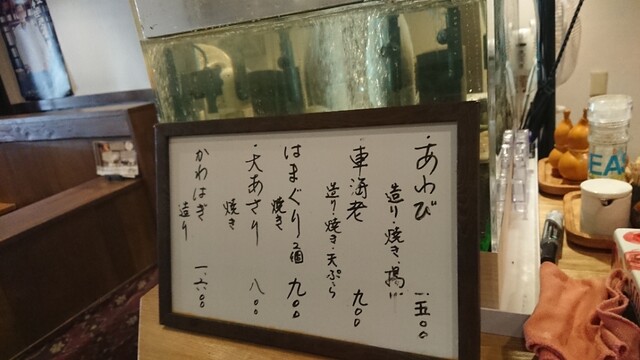 ・あわび
造り・焼き・揚げ
一五〇〇
・車海老
造り・焼き・天ぷら
九〇〇
はまぐり2個
焼き
九〇〇
・大あさり
焼き
八〇〇
かわはぎ
造り
一六〇〇
EAS